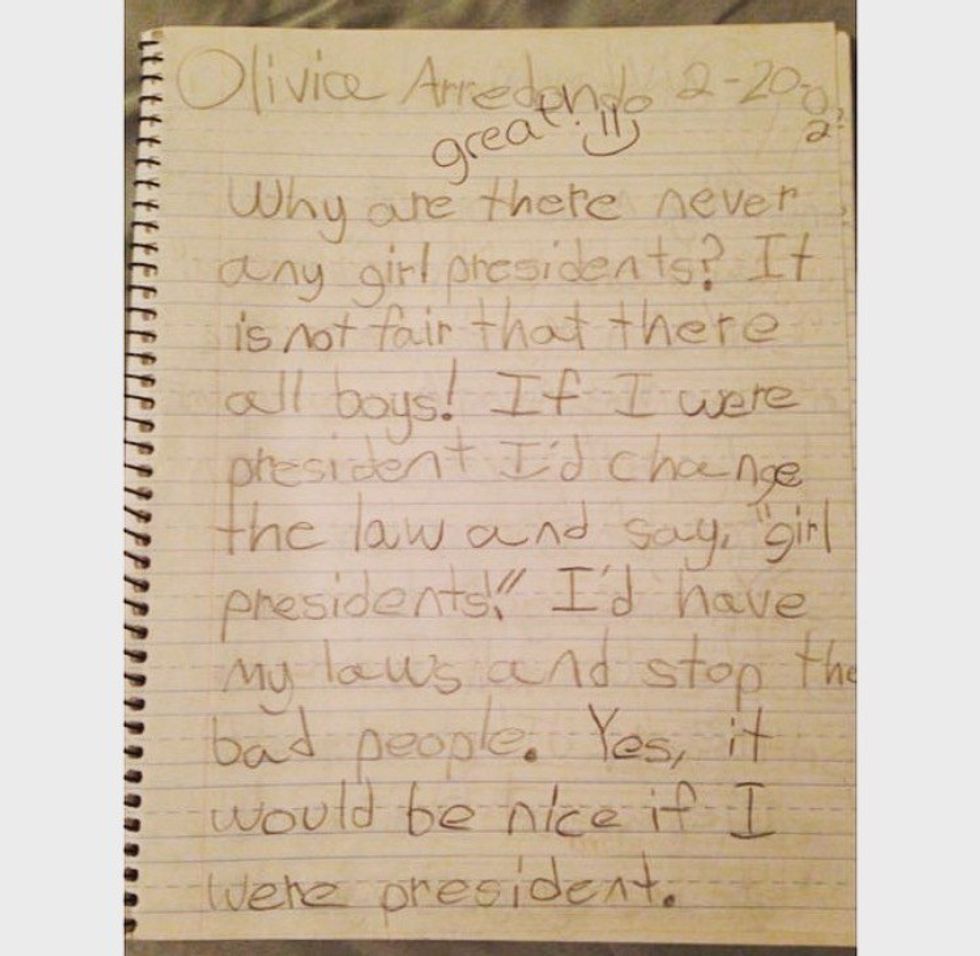 Olivia Arredondo 2-20-02
great! :)
Why are there never
any girl presidents? It
is not fair that there
all boys! If I were
president I'd change
the law and say, "girl
presidents!" I'd have
my laws and stop the
bad people. Yes, it
would be nice if I
were president.